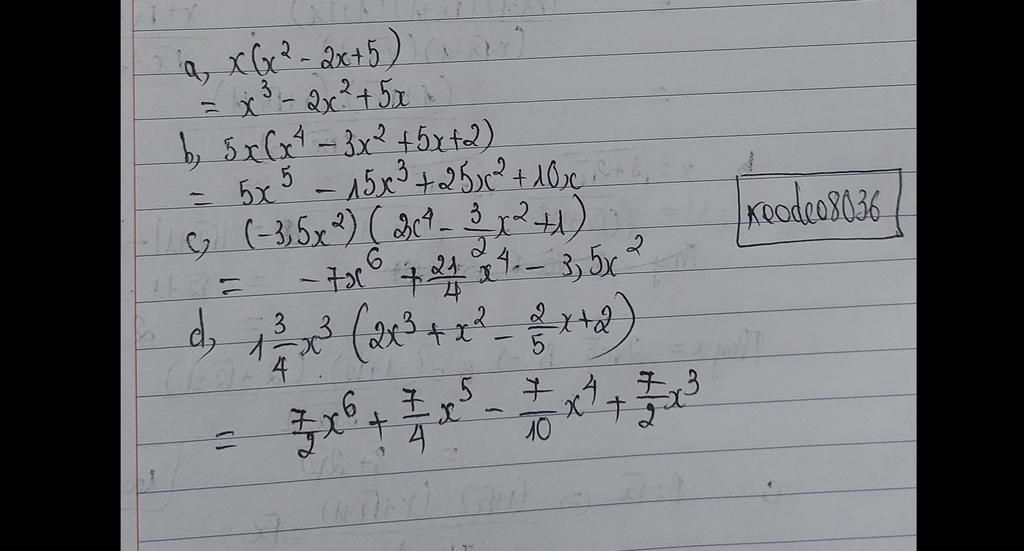 a, x(x² - 2x+5)
= x³ - 2x² + 5x
b, 5x(x⁴ - 3x² + 5x+2)
= 5x⁵ - 15x³ + 25x² + 10x
c, (-3,5x²)(2x⁴ - 3/2 x² + 1)
= -7x⁶ + 21/4 x⁴ - 3,5x²
keodeo8036
d, 1 3/4 x³ (2x³ + x² - 2/5 x + 2)
= 7/2 x⁶ + 7/4 x⁵ - 7/10 x⁴ + 7/2 x³